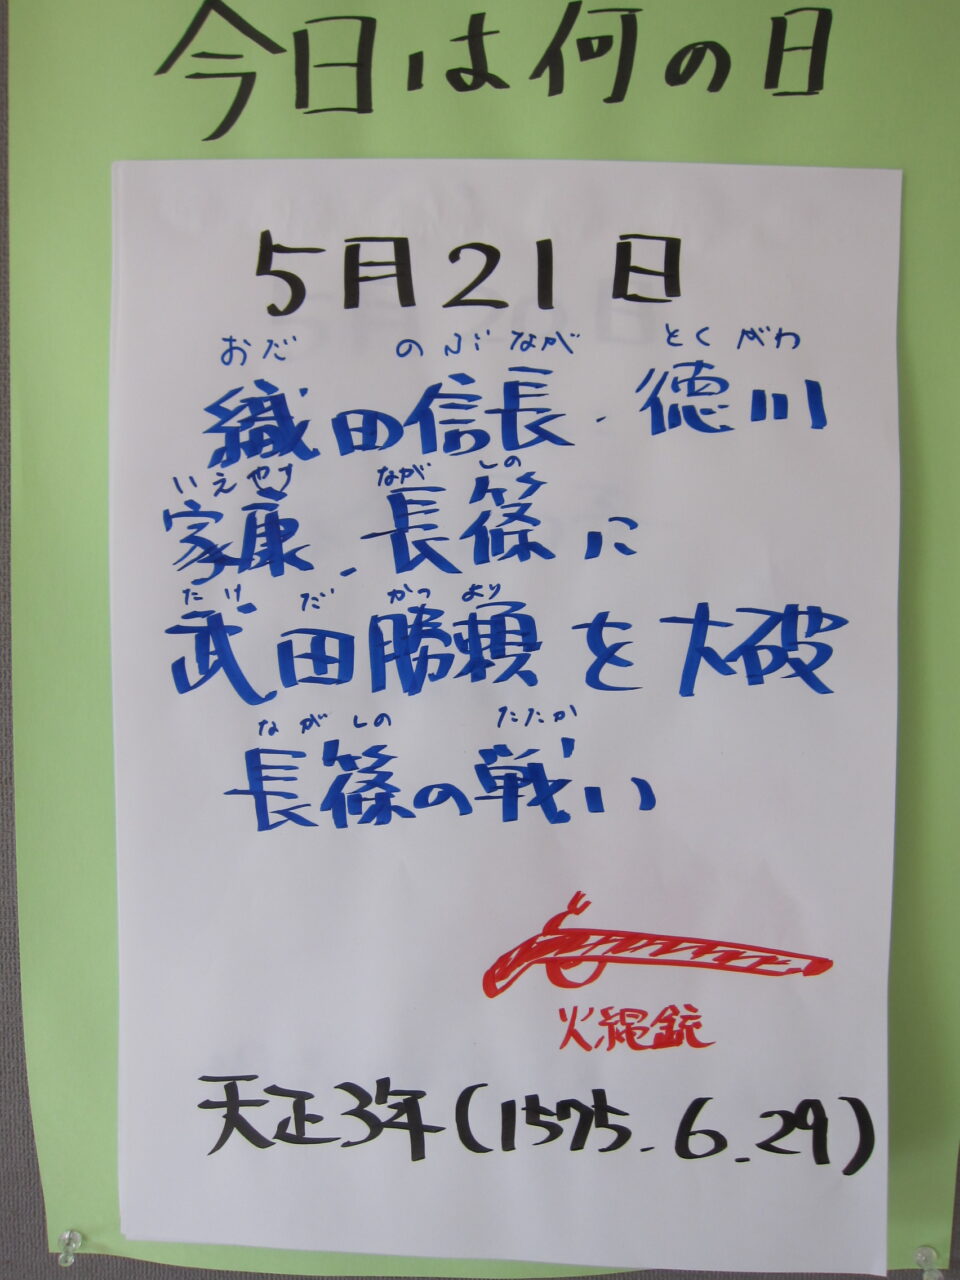 今日は何の日
5月21日
おだ のぶなが とくがわ
織田信長、徳川
いえやす ながしの
家康、長篠に
たけだ かつより
武田勝頼を大破
ながしの たたか
長篠の戦い
火縄銃
天正3年(1575.6.29)